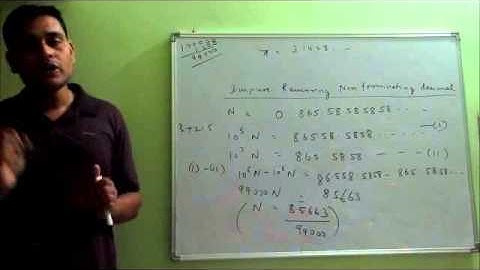 100000
1000
99000
π = 3.1428...
Impure Recurring Non terminating decimal
N = 0.865 58 58 58 58 ...
3+2=5
10⁵N = 86558.5858 ... — (i)
10³N = 865.5858 — — — (ii)
(i) - (ii) 10⁵N - 10³N = 86558.5858 - 865.5858...
99000N = 85663
N = 85663
99000